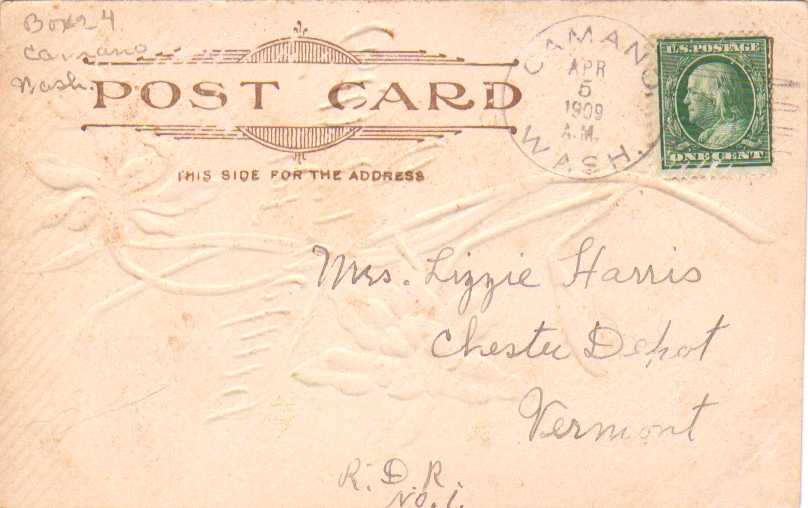 Box 24
Camano
Wash.
POST CARD
THIS SIDE FOR THE ADDRESS
CAMANO,
APR
5
1909
A.M.
WASH.
U.S. POSTAGE
ONE CENT
Mrs. Lizzie Harris
Chester Depot
Vermont
R. D. R.
No. 1.